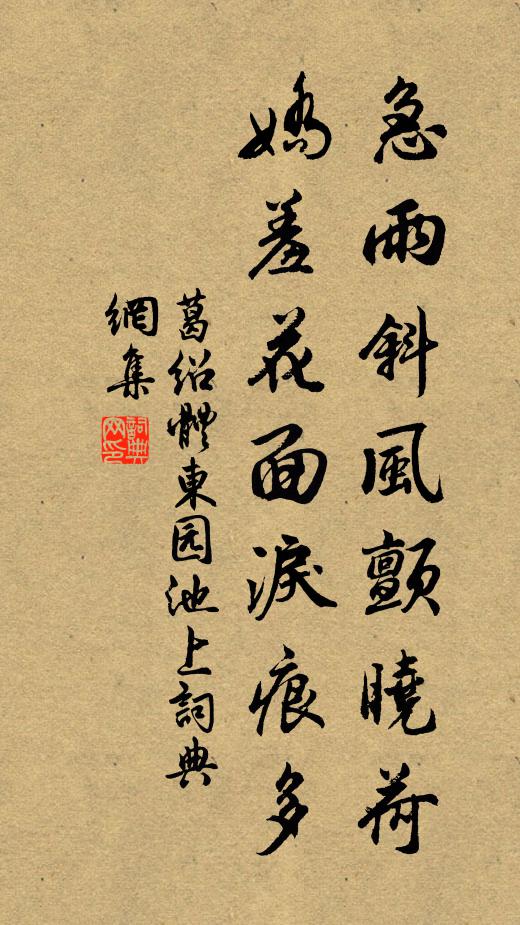 急雨斜風顫曉荷
嬌羞花面淚痕多
葛绍體東园池上詞典
網集
詞典網印